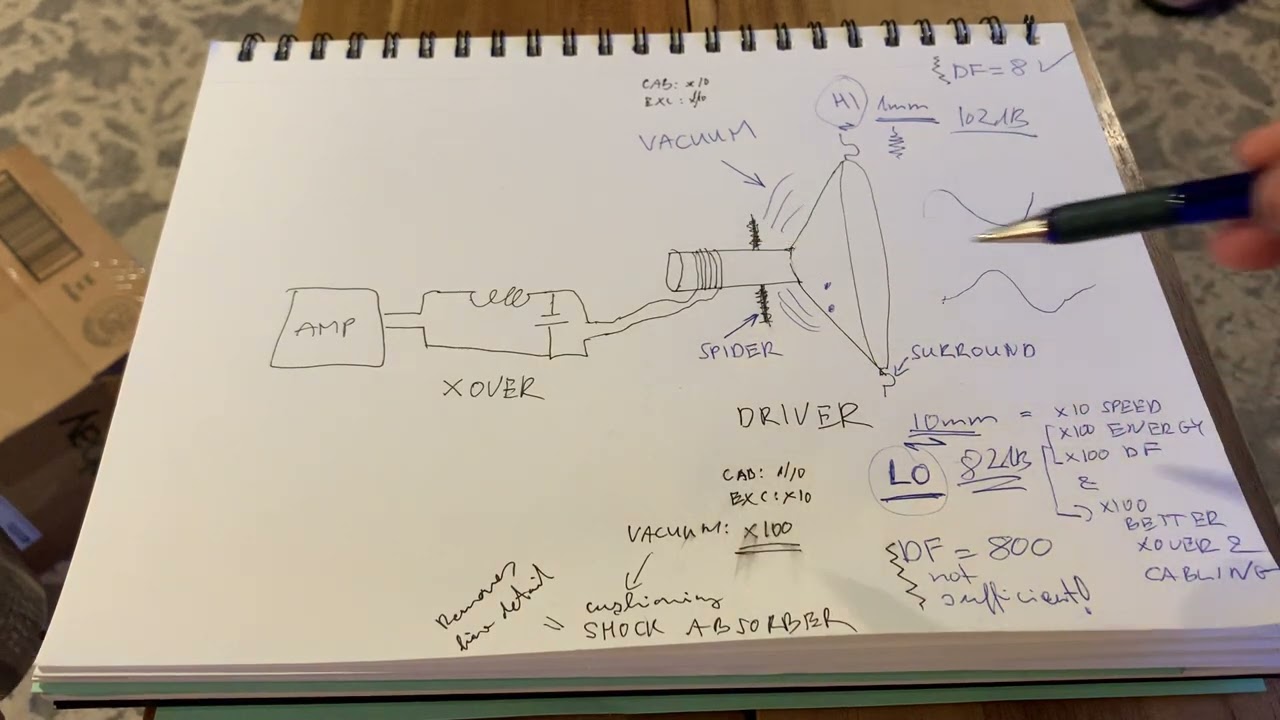 DF = 8 ✓
CAB: x10
EXC: 1/10
HI 1mm 102dB
VACUUM
AMP
XOVER
SPIDER
SURROUND
DRIVER
10mm = x10 SPEED
x100 ENERGY
x100 DF
&
x100
BETTER
XOVER &
CABLING
LO 82dB
CAB: 1/10
EXC: x10
VACUUM: x100
DF = 800
not
sufficient!
cushioning
= SHOCK ABSORBER
Removes
fine detail